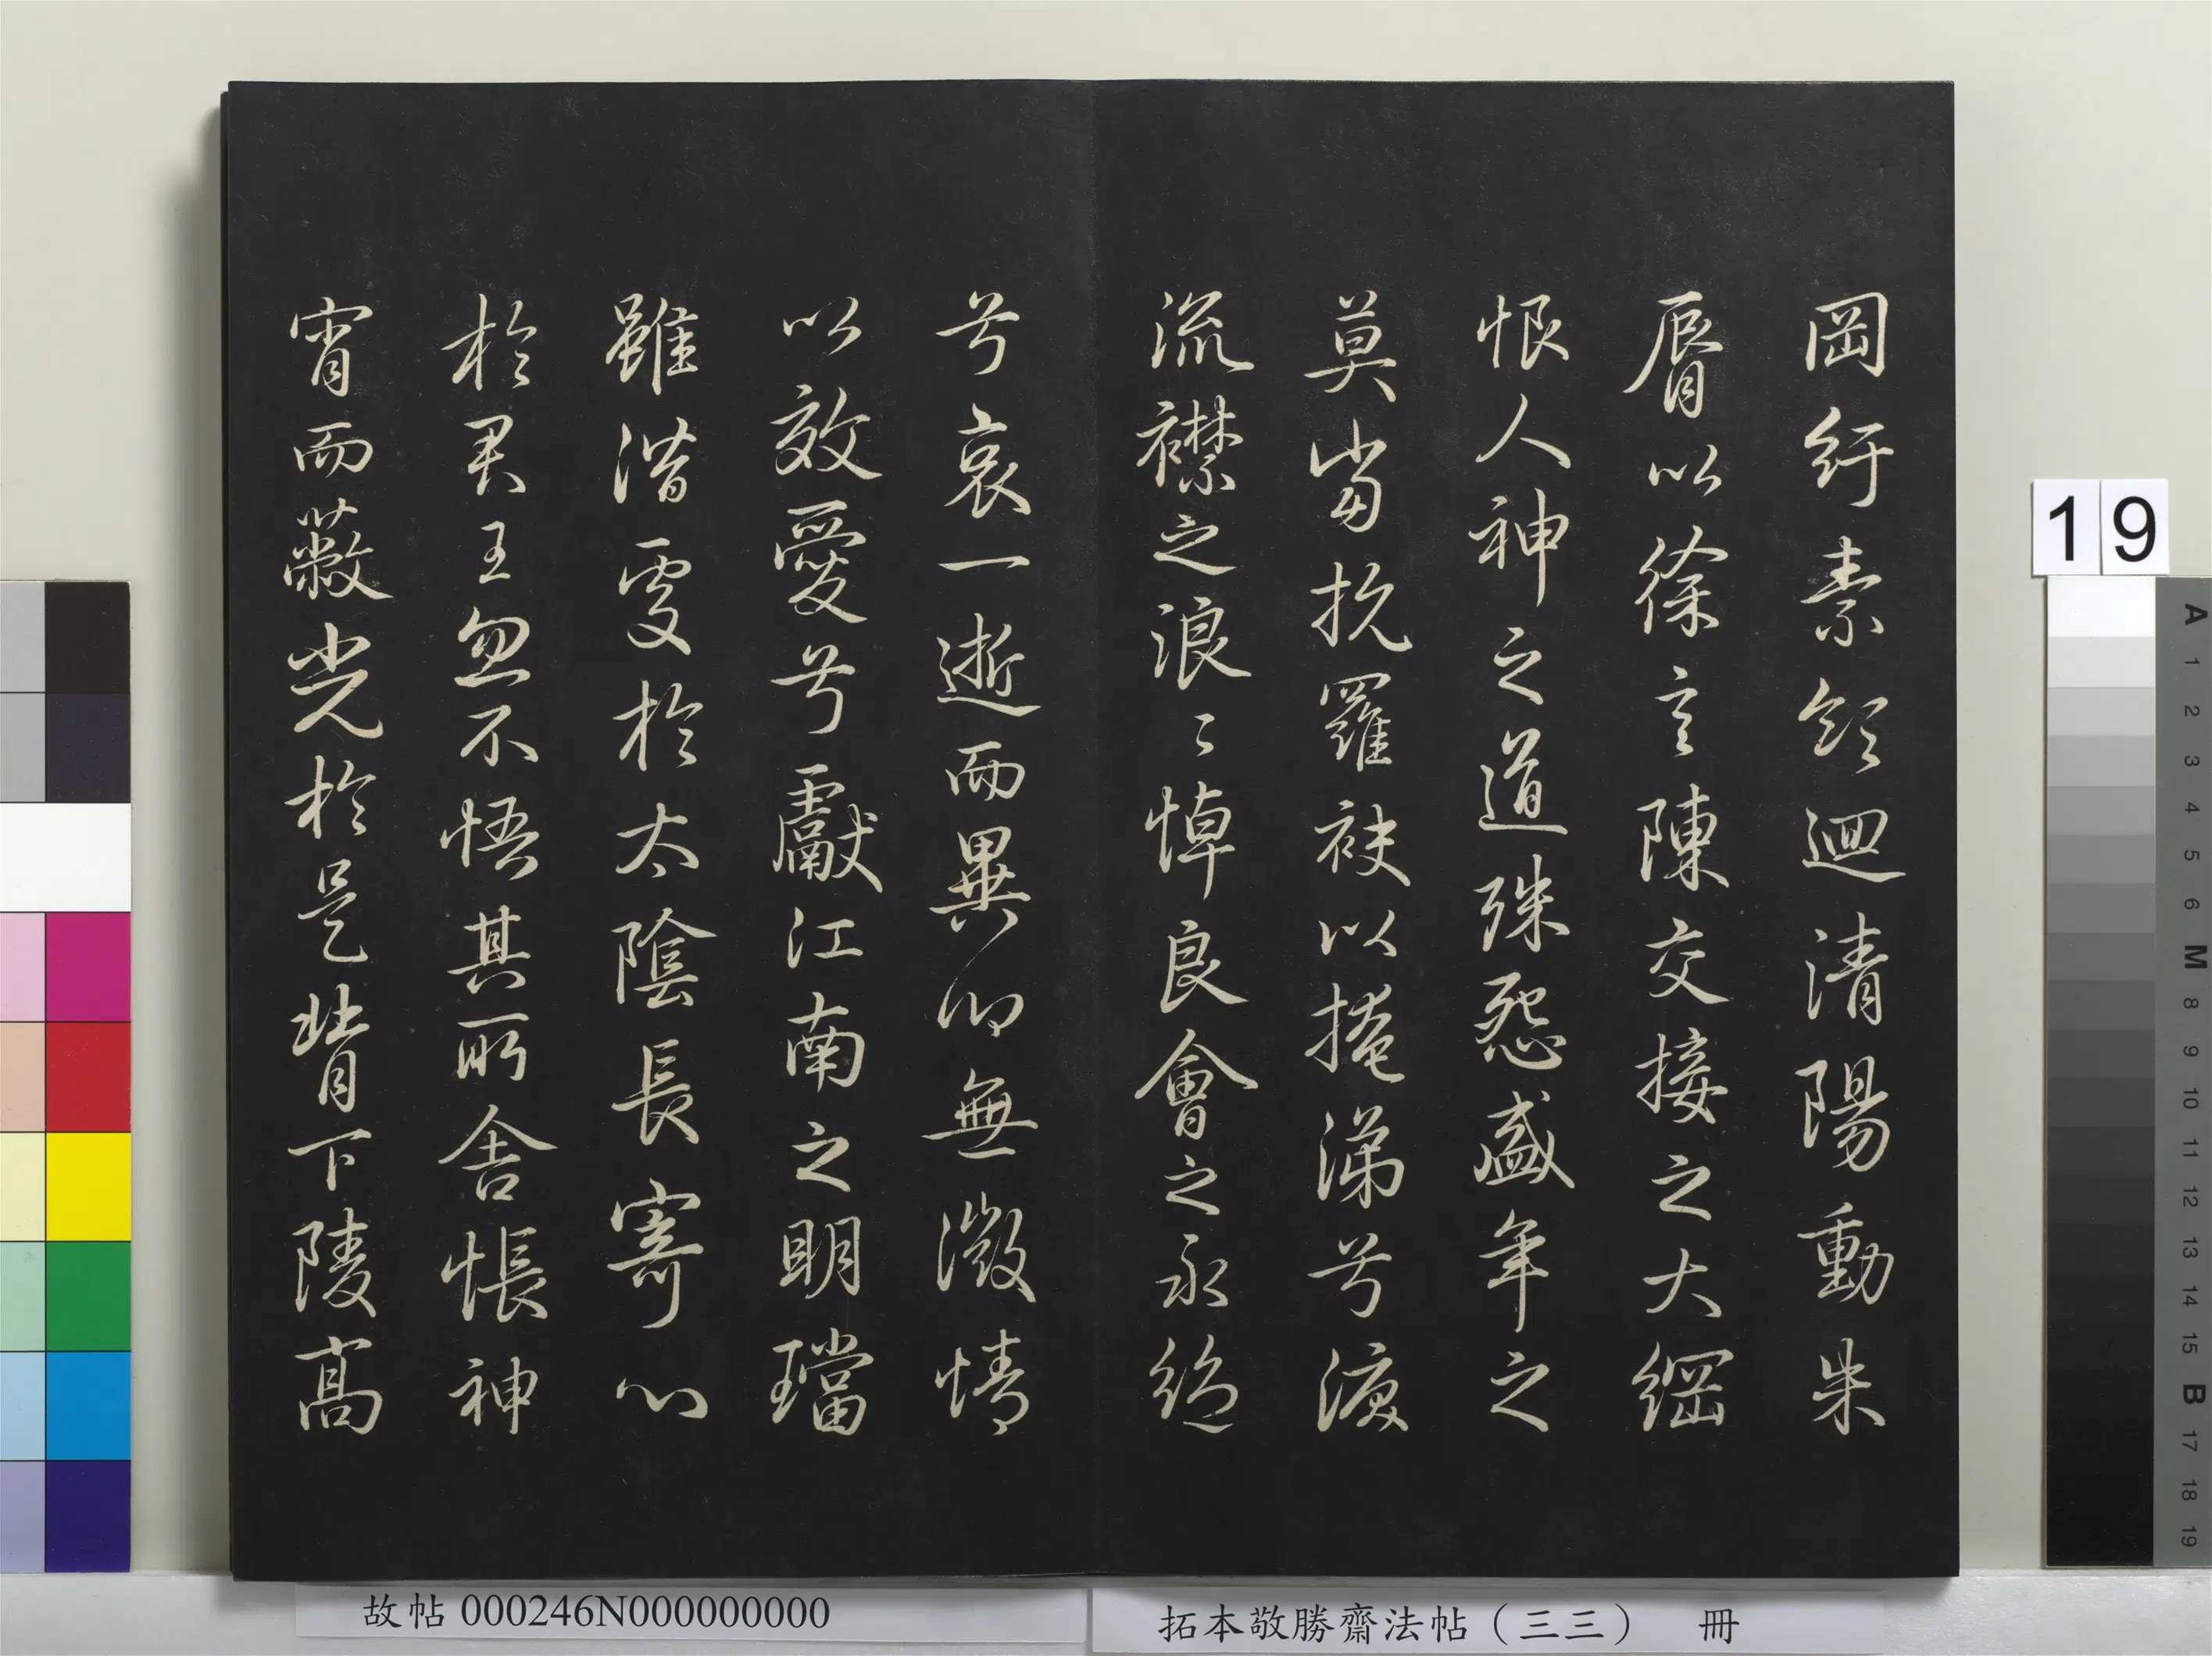 岡紆素領迴清陽動朱
脣以徐言陳交接之大綱
恨人神之道殊怨盛年之
莫當抗羅袂以掩涕兮淚
流襟之浪〻悼良會之永絕
兮哀一逝而異鄉無微情
以效愛兮獻江南之明璫
雖潛處於太陰長寄心
於君王忽不悟其所舍悵神
宵而蔽光於是背下陵高
19
A 1 2 3 4 5 6 M 8 9 10 11 12 13 14 15 B 17 18 19
故帖 000246N000000000
拓本敬勝齋法帖（三三） 冊